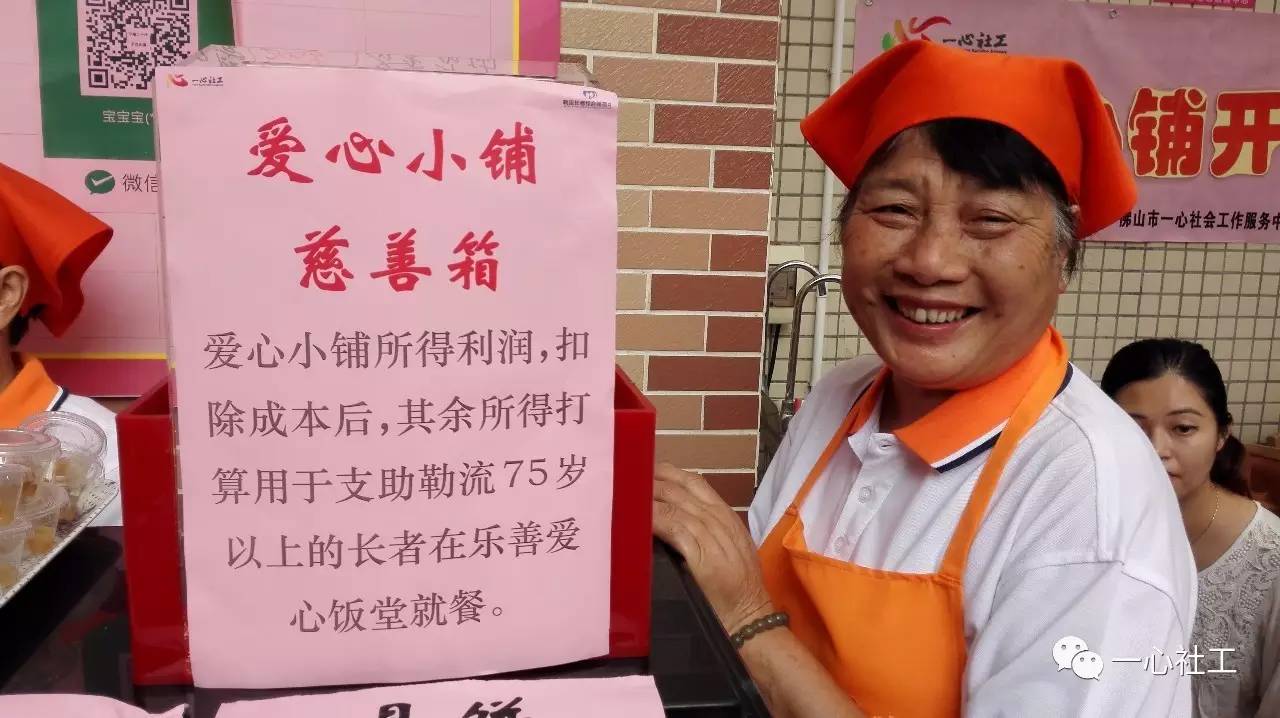 宝宝宝(*
微信
一心社工
爱心小铺
慈善箱
爱心小铺所得利润,扣
除成本后,其余所得打
算用于支助勒流75岁
以上的长者在乐善爱
心饭堂就餐。
月饼
一心社工
小铺开
佛山市一心社会工作服务中
一心社工